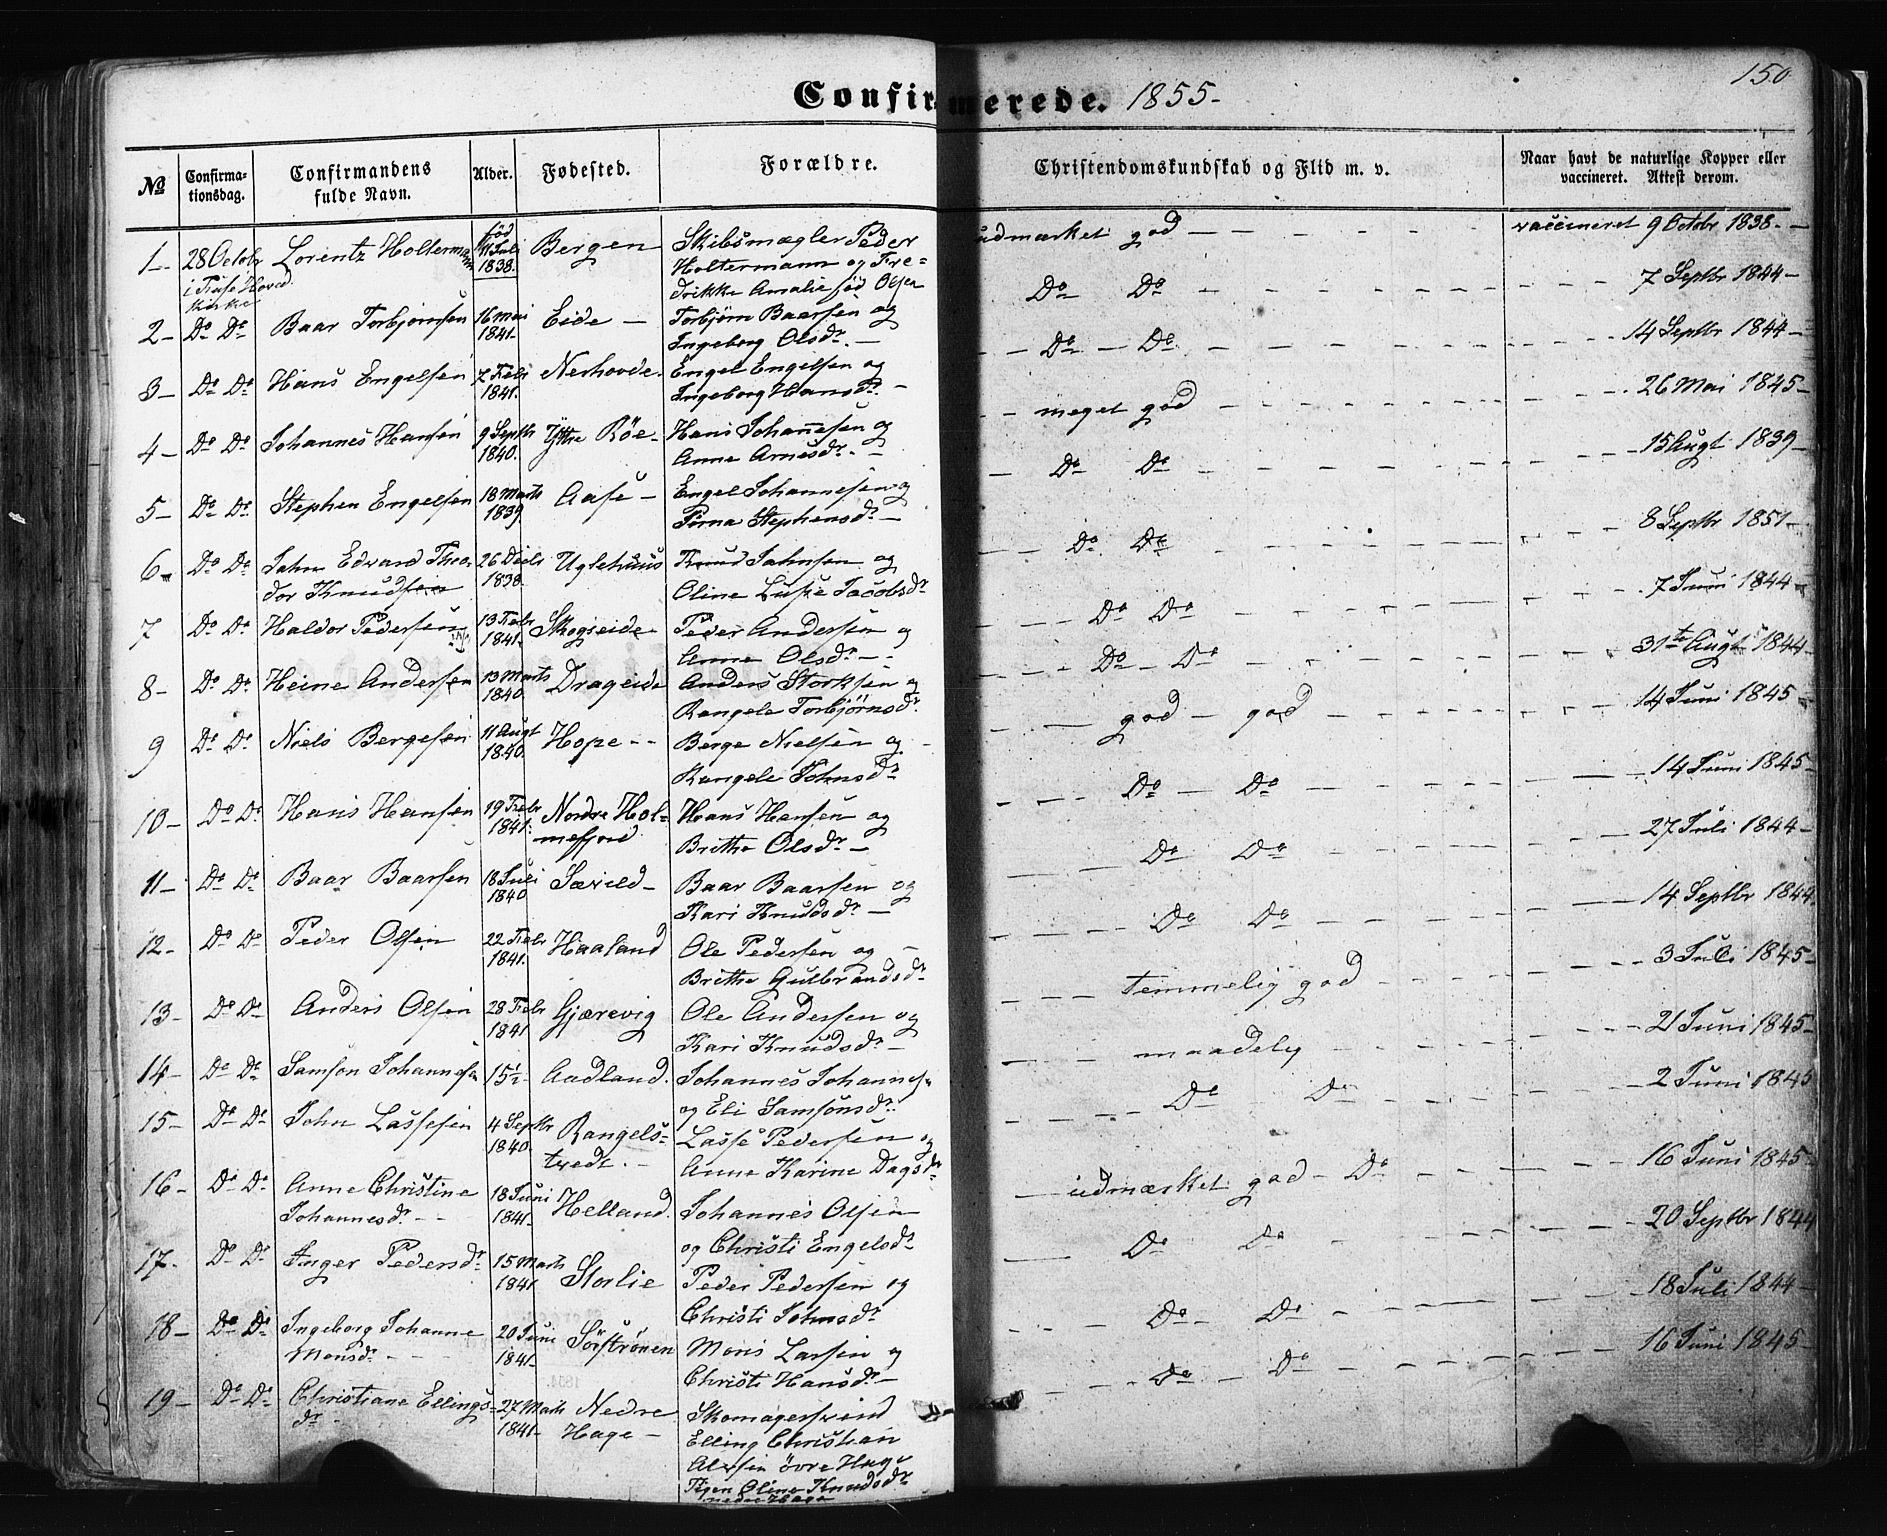 Confirmerede. 1855-
150
No
Confirma-
tionsdag.
Confirmandens
fulde Navn.
Alder.
Fødested.
Forældre.
Christendomskundskab og Flid m. v.
Naar havt de naturlige Kopper eller
vaccineret. Attest derom.
1- 28 Octobr Lorentz Holtermann fød 11 Juli 1838. Bergen Skibsmægler Peder udmærket god - vaccineret 9 Octbr 1838. -
i Fuse Hoved Holtermann og Fre=
kirke drikke Amalie fød Olsen
2- Do Do Baar Torbjørnsen 16 Mai 1841- Eide - Torbjørn Baarsen og Do Do 7 Septbr 1844-
Ingeborg Olsdr. -
3- Do Do Hans Engelsen 7 Febr 1841. Nerhovde. Engel Engelsen og Do - Do 14 Septbr 1844-
Ingeborg Hansdr. -
4- Do Do Johannes Hansen 9 Septbr 1840. Yttre Röe- Hans Johannesen og meget god 26 Mai 1845-
Anne Arnesdr. -
5- Do Do Stephen Engelsen 18 Marts 1839 Aase - Engel Johannesen og Do Do 15 Augt 1839-
Stephensdr. -
6- Do Do John Edvard Theo= 26 Decbr 1838. Uglehuus Knud Johnsen og Do. Do 8 Septbr 1851-
dor Knudsen Oline Lusie Jacobsdr
7 Do Do Haldor Pedersen 13 Febr 1841. Skogseide Peder Andersen og Do Do 7 Juni 1844-
Anne Olsdr. - -
8- Do Do Heine Andersen 13 Marts 1840. Drageide Anders Storksen og Do - Do 31te Augt 1844-
Rangele Torbjørnsdr.
9 Do Do Niels Bergesen 11 Augt 1840. Hope - - Berge Nielsen og god - god 14 Juni 1845-
Rangele Johnsdr
10- Do Do Hans Hansen 19 Febr 1841. Nordre Hol= Hans Hansen og Do Do 14 Juni 1845-
mefjord Brithe Olsdr. -
11- Do Do Baar Baarsen 18 Juli 1840 Sævild- Baar Baarsen og Do Do 27 Juli 1844-
Kari Knudsdr. -
12- Do Do Peder Olsen 22 Febr 1841. Haaland Ole Pedersen og - Do Do 14 Septbr 1844
Brithe Gulbrandsdr
13- Do Do Anders Olsen 28 Febr 1841 Gjærevig Ole Andersen og temmelig god 3 Juli 1845-
Kari Knudsdr. -
14- Do Do Samson Johannesen 15½- Aadland. Johannes Johannesn maadelig 21 Juni 1845-
og Eli Samsonsdr.
15- Do Do John Lassesen 4 Septbr 1840 Rangels= Lasse Pedersen og Do Do 2 Juni 1845
tvedt. - Anne Karine Dagsdr
16- Do Do Anne Christine 18 Juni 1841- Helland. Johannes Olsen udmærket god - Do 16 Juni 1845-
Johannesdr. - - og Christi Engelsdr
17- Do Do Inger Pedersdr 15 Marts 1841 Storlie Peder Pedersen og Do Do 20 Septbr 1844
Christi Johnsdr
18- Do Do Ingeborg Johanne 20 Juni 1841- Sörströnen Mons Larsen og Do Do 18 Juli 1844-
Monsdr. - - Christi Hansdr -
19- Do Do Christiane Ellings= 27 Marts 1841- Nedre Skomagersvend Do Do 16 Juni 1845-
dr - Hage - Elling Christian
Olsen övre Hage
Oline Knudsdr
nedre Hage